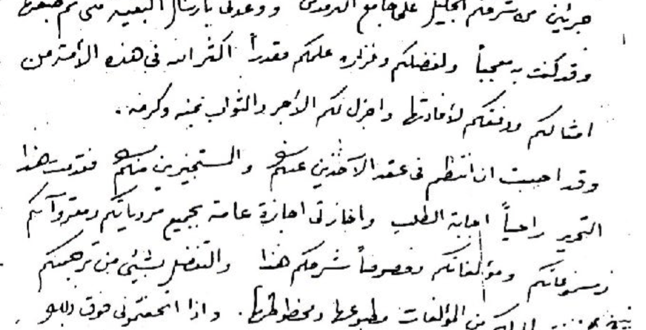 جزئين من شرحكم الجليل على جامع الترمذي ووعدني بارسال البقية متى تم طبعها
وقد كنت به معجباً ولفضلكم وغزارة علمكم مقدراً اكثر الله في هذه الأمة من
امثالكم ووفقكم لافادتها واجزل لكم الأجر والثواب بمنه وكرمه .
وقد احببت ان انتظم في عقد الآخذين عنكم والمستجيزين منكم فقدمت هذا
التحرير راجياً اجابة الطلب واجازتي اجازة عامة بجميع مروياتكم ومقروآتكم
ومسموعاتكم ومؤلفاتكم وخصوصاً شرحكم هذا والتفضل بشيئ من ترجمتكم
من المؤلفات مطبوعها ومخطوطها . واذا اتحفتموني فوق ذلك